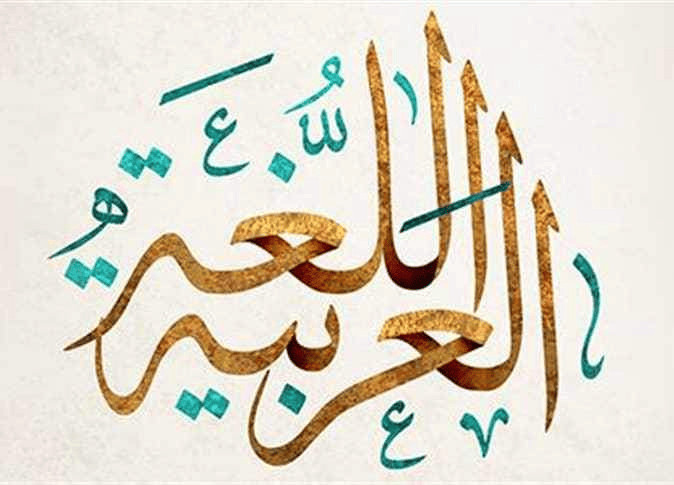 اللُّغة
العربية